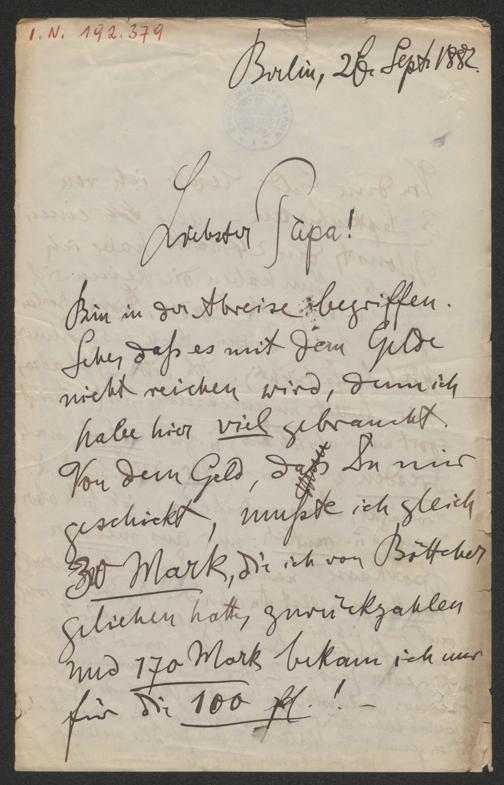 I.N. 192.379
Berlin, 26. Sept. 1882.
Liebster Papa!
Bin in der Abreise begriffen.
Sehe, daß es mit dem Gelde
nicht reichen wird, denn ich
habe hier viel gebraucht.
Von dem Geld, das Du mir
geschickt, mußte ich gleich
30 Mark, die ich von Böttcher
geliehen hatte, zurückzahlen
und 170 Mark bekam ich nur
für die 100 fl.! –